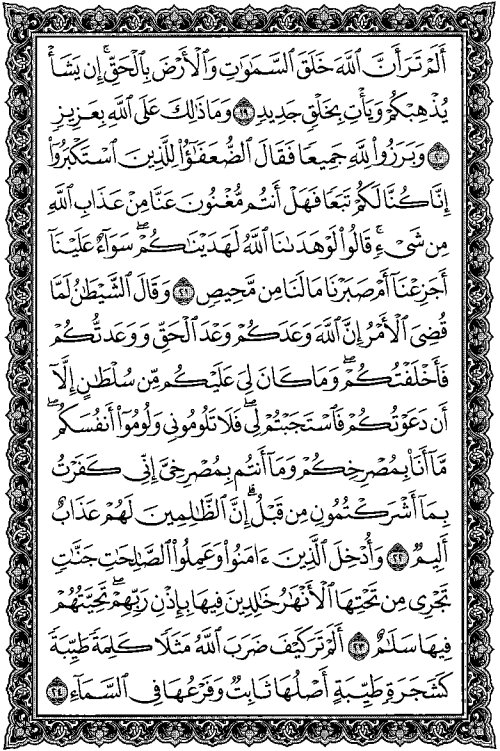 أَلَمْ تَرَ أَنَّ ٱللَّهَ خَلَقَ ٱلسَّمَٰوَٰتِ وَٱلْأَرْضَ بِٱلْحَقِّ ۚ إِن يَشَأْ
يُذْهِبْكُمْ وَيَأْتِ بِخَلْقٍ جَدِيدٍ ١٩ وَمَا ذَٰلِكَ عَلَى ٱللَّهِ بِعَزِيزٍ
٢٠ وَبَرَزُوا۟ لِلَّهِ جَمِيعًا فَقَالَ ٱلضُّعَفَٰٓؤُا۟ لِلَّذِينَ ٱسْتَكْبَرُوٓا۟
إِنَّا كُنَّا لَكُمْ تَبَعًا فَهَلْ أَنتُم مُّغْنُونَ عَنَّا مِنْ عَذَابِ ٱللَّهِ
مِن شَىْءٍ ۚ قَالُوا۟ لَوْ هَدَىٰنَا ٱللَّهُ لَهَدَيْنَٰكُمْ ۖ سَوَآءٌ عَلَيْنَآ
أَجَزِعْنَآ أَمْ صَبَرْنَا مَا لَنَا مِن مَّحِيصٍ ٢١ وَقَالَ ٱلشَّيْطَٰنُ لَمَّا
قُضِىَ ٱلْأَمْرُ إِنَّ ٱللَّهَ وَعَدَكُمْ وَعْدَ ٱلْحَقِّ وَوَعَدتُّكُمْ
فَأَخْلَفْتُكُمْ ۖ وَمَا كَانَ لِىَ عَلَيْكُم مِّن سُلْطَٰنٍ إِلَّآ
أَن دَعَوْتُكُمْ فَٱسْتَجَبْتُمْ لِى ۖ فَلَا تَلُومُونِى وَلُومُوٓا۟ أَنفُسَكُم ۖ
مَّآ أَنَا۠ بِمُصْرِخِكُمْ وَمَآ أَنتُم بِمُصْرِخِىَّ ۖ إِنِّى كَفَرْتُ
بِمَآ أَشْرَكْتُمُونِ مِن قَبْلُ ۗ إِنَّ ٱلظَّٰلِمِينَ لَهُمْ عَذَابٌ
أَلِيمٌ ٢٢ وَأُدْخِلَ ٱلَّذِينَ ءَامَنُوا۟ وَعَمِلُوا۟ ٱلصَّٰلِحَٰتِ جَنَّٰتٍ
تَجْرِى مِن تَحْتِهَا ٱلْأَنْهَٰرُ خَٰلِدِينَ فِيهَا بِإِذْنِ رَبِّهِمْ ۖ تَحِيَّتُهُمْ
فِيهَا سَلَٰمٌ ٢٣ أَلَمْ تَرَ كَيْفَ ضَرَبَ ٱللَّهُ مَثَلًا كَلِمَةً طَيِّبَةً
كَشَجَرَةٍ طَيِّبَةٍ أَصْلُهَا ثَابِتٌ وَفَرْعُهَا فِى ٱلسَّمَآءِ ٢٤